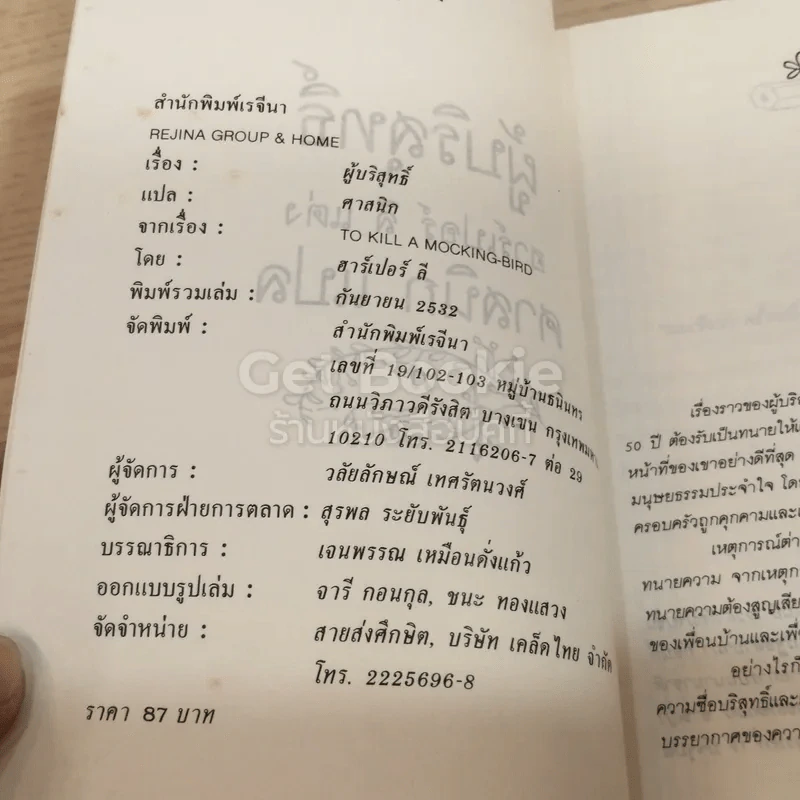 สำนักพิมพ์เรจีนา
REJINA GROUP & HOME
เรื่อง : ผู้บริสุทธิ์
แปล : ศาสนิก
จากเรื่อง : TO KILL A MOCKING-BIRD
โดย : ฮาร์เปอร์ ลี
พิมพ์รวมเล่ม : กันยายน 2532
จัดพิมพ์ : สำนักพิมพ์เรจีนา
เลขที่ 19/102-103 หมู่บ้านธนินทร
ถนนวิภาวดีรังสิต บางเขน กรุงเทพมหา
10210 โทร. 2116206-7 ต่อ 29
ผู้จัดการ : วลัยลักษณ์ เทศรัตนวงศ์
ผู้จัดการฝ่ายการตลาด : สุรพล ระยับพันธุ์
บรรณาธิการ : เจนพรรณ เหมือนดั่งแก้ว
ออกแบบรูปเล่ม : จารี กอนกุล, ชนะ ทองแสวง
จัดจำหน่าย : สายส่งศึกษิต, บริษัท เคล็ดไทย จำกัด
โทร. 2225696-8
ราคา 87 บาท
Get Bookie
ร้านหนังสือบุ๊คกี้
เรื่องราวของผู้บริส
50 ปี ต้องรับเป็นทนายให้เ
หน้าที่ของเขาอย่างดีที่สุด
มนุษยธรรมประจำใจ โด
ครอบครัวถูกคุกคามและเ
เหตุการณ์ต่า
ทนายความ จากเหตุก
ทนายความต้องสูญเสีย
ของเพื่อนบ้านและเพื่
อย่างไรก็
ความซื่อบริสุทธิ์และ
บรรยากาศของควา